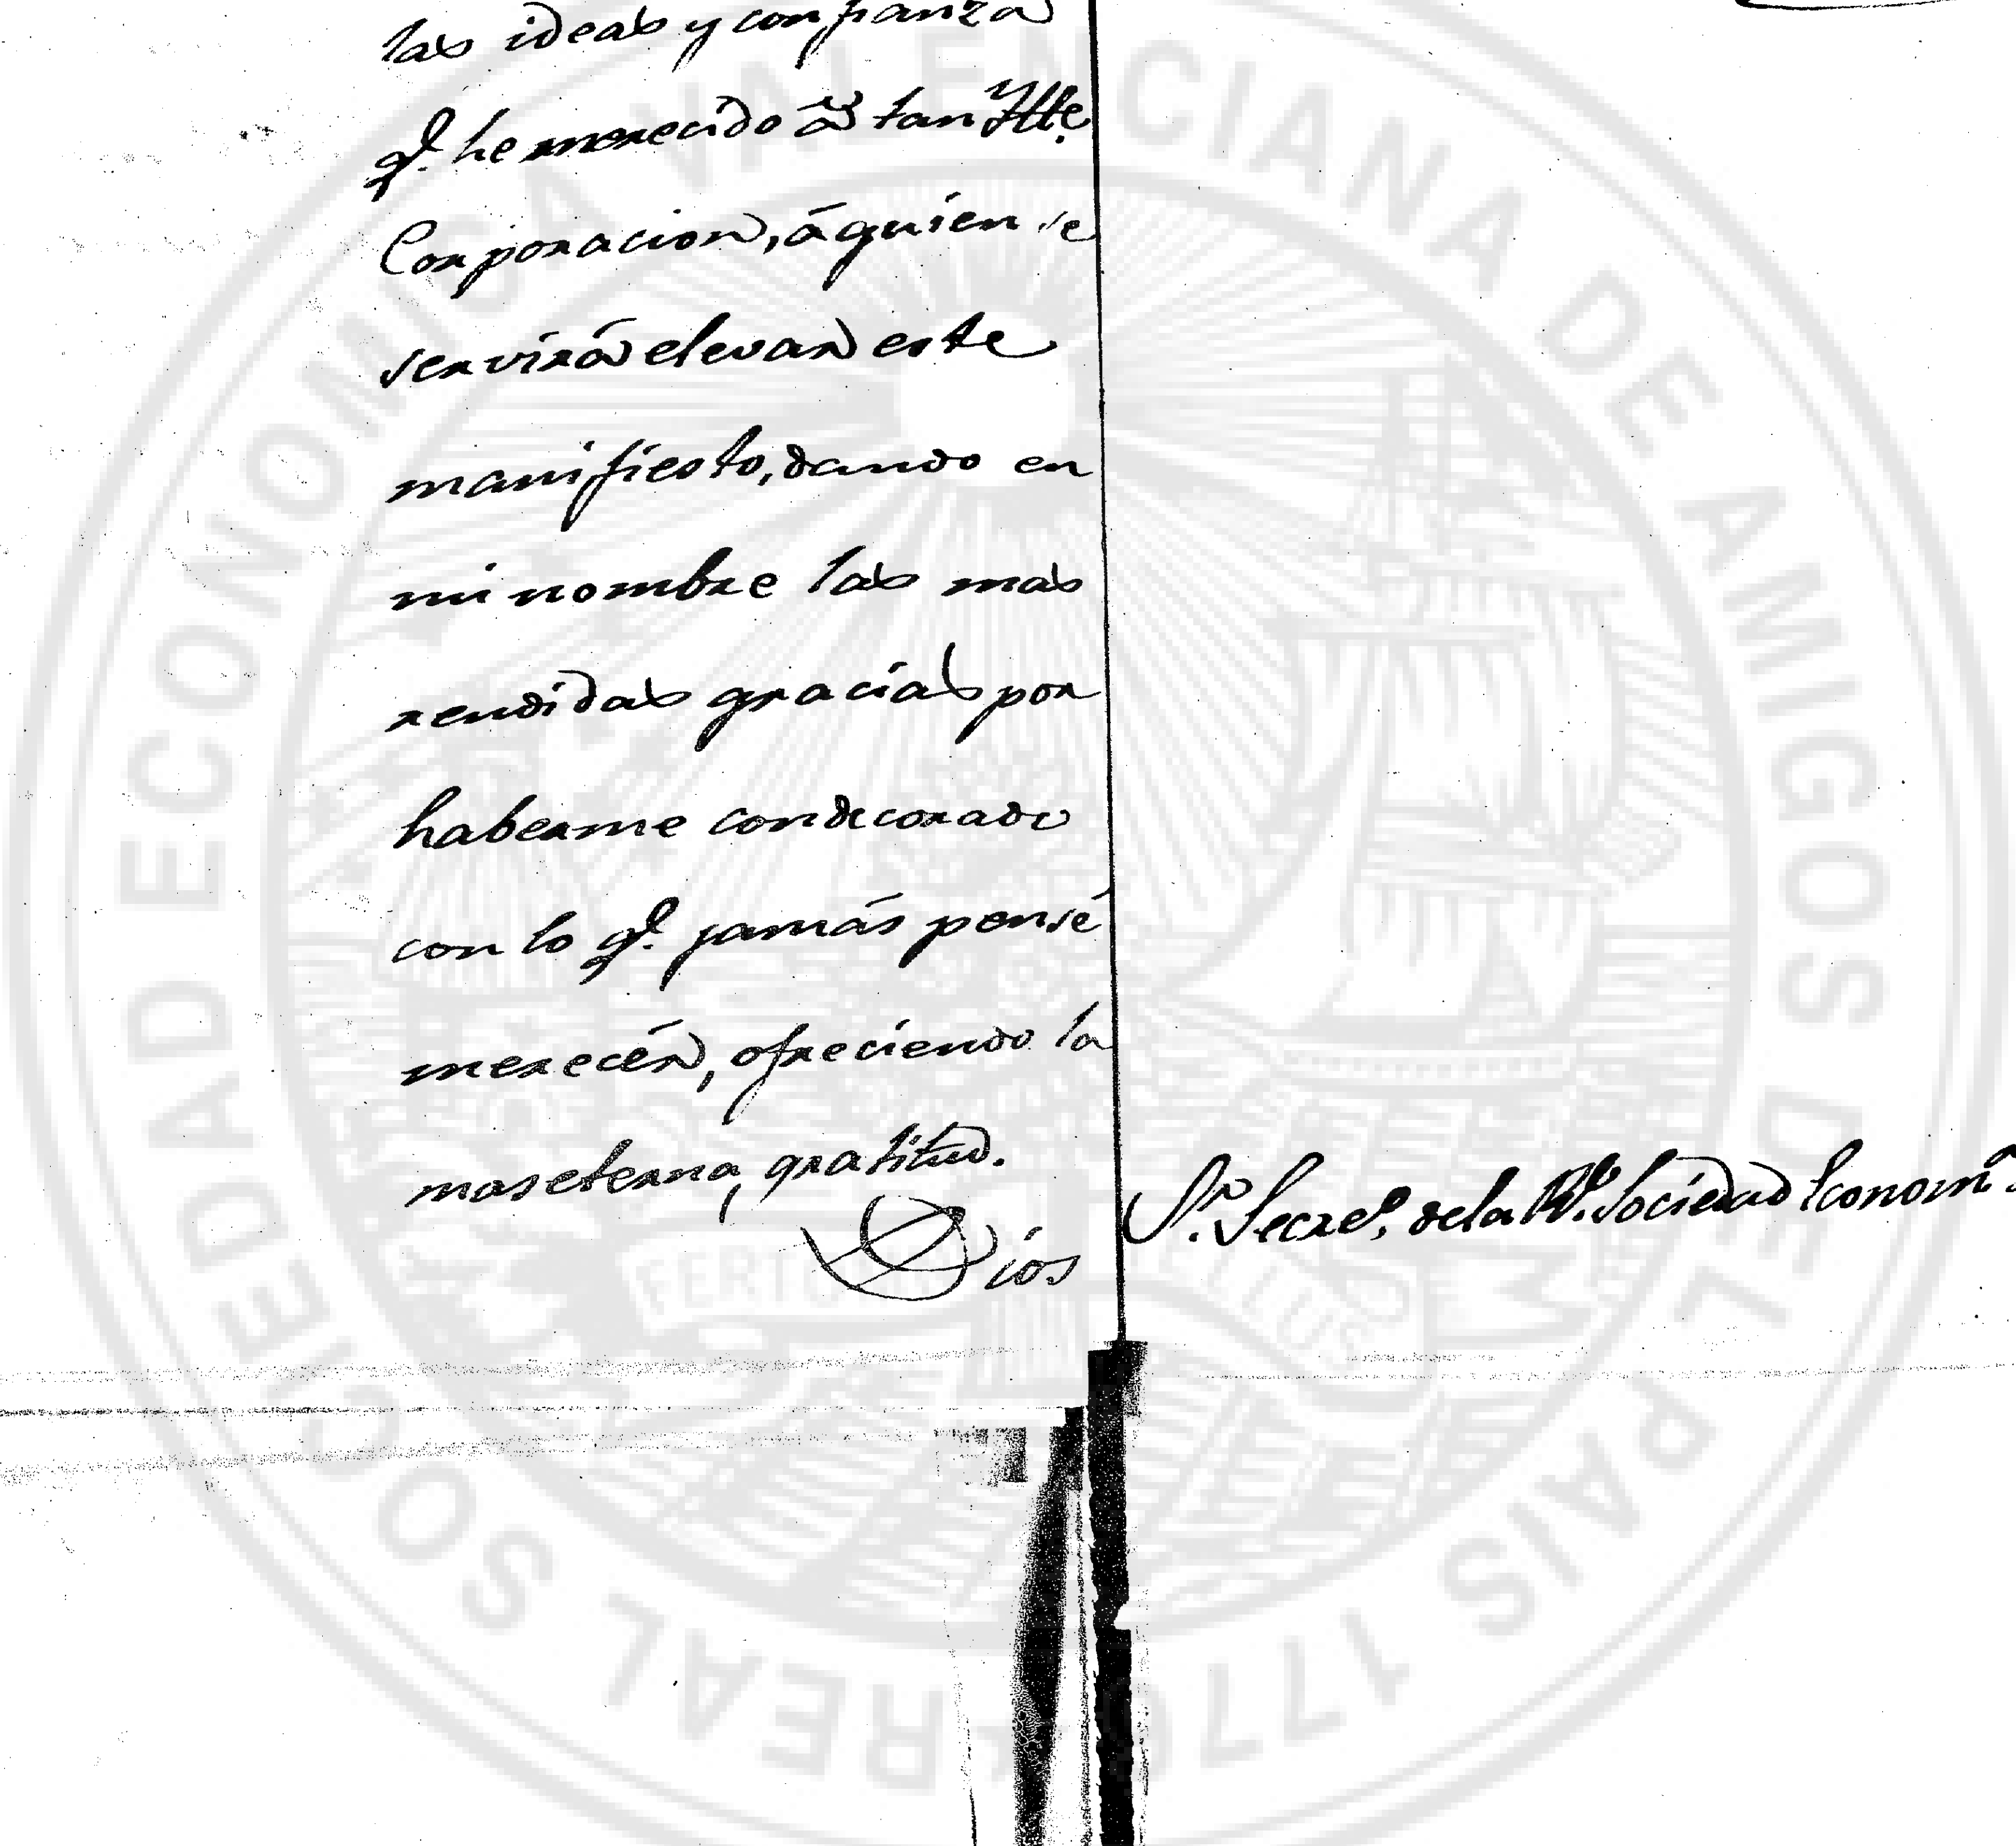 las ideas y confianza
q.e he merecido á tan Ylte.
Corporacion, á quien se
servirá elevar este
manifiesto, dando en
mi nombre las mas
rendidas gracias por
haberme condecorado
con lo q.e jamás pensé
merecér, ofreciendo la
mas eterna, gratitud.
Dios
S.r Secre.o de la R.l Sociedad Econom.a
REAL SOCIEDAD ECONOMICA VALENCIANA DE AMIGOS DEL PAIS 1776